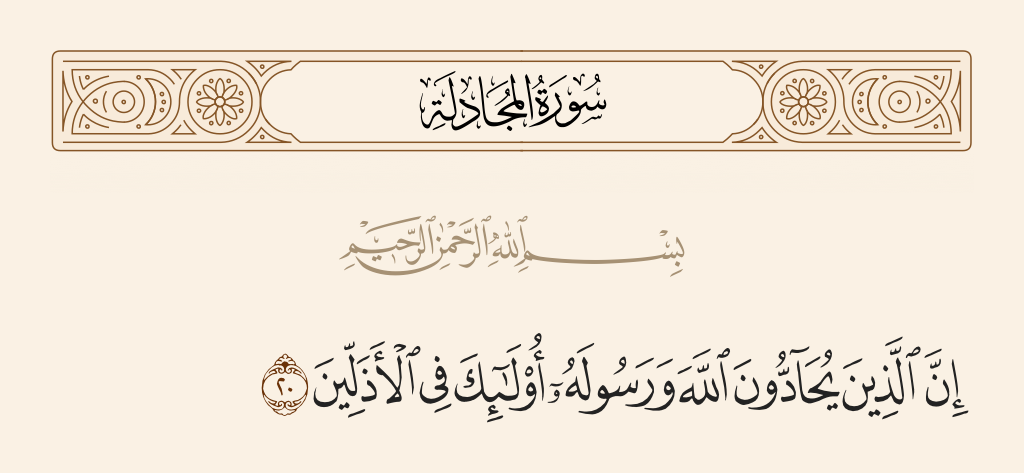 سُورَةُ المُجَادلَةِ
بِسْمِ ٱللَّهِ ٱلرَّحْمَٰنِ ٱلرَّحِيمِ
إِنَّ ٱلَّذِينَ يُحَآدُّونَ ٱللَّهَ وَرَسُولَهُۥٓ أُو۟لَـٰٓئِكَ فِى ٱلْأَذَلِّينَ ٢٠